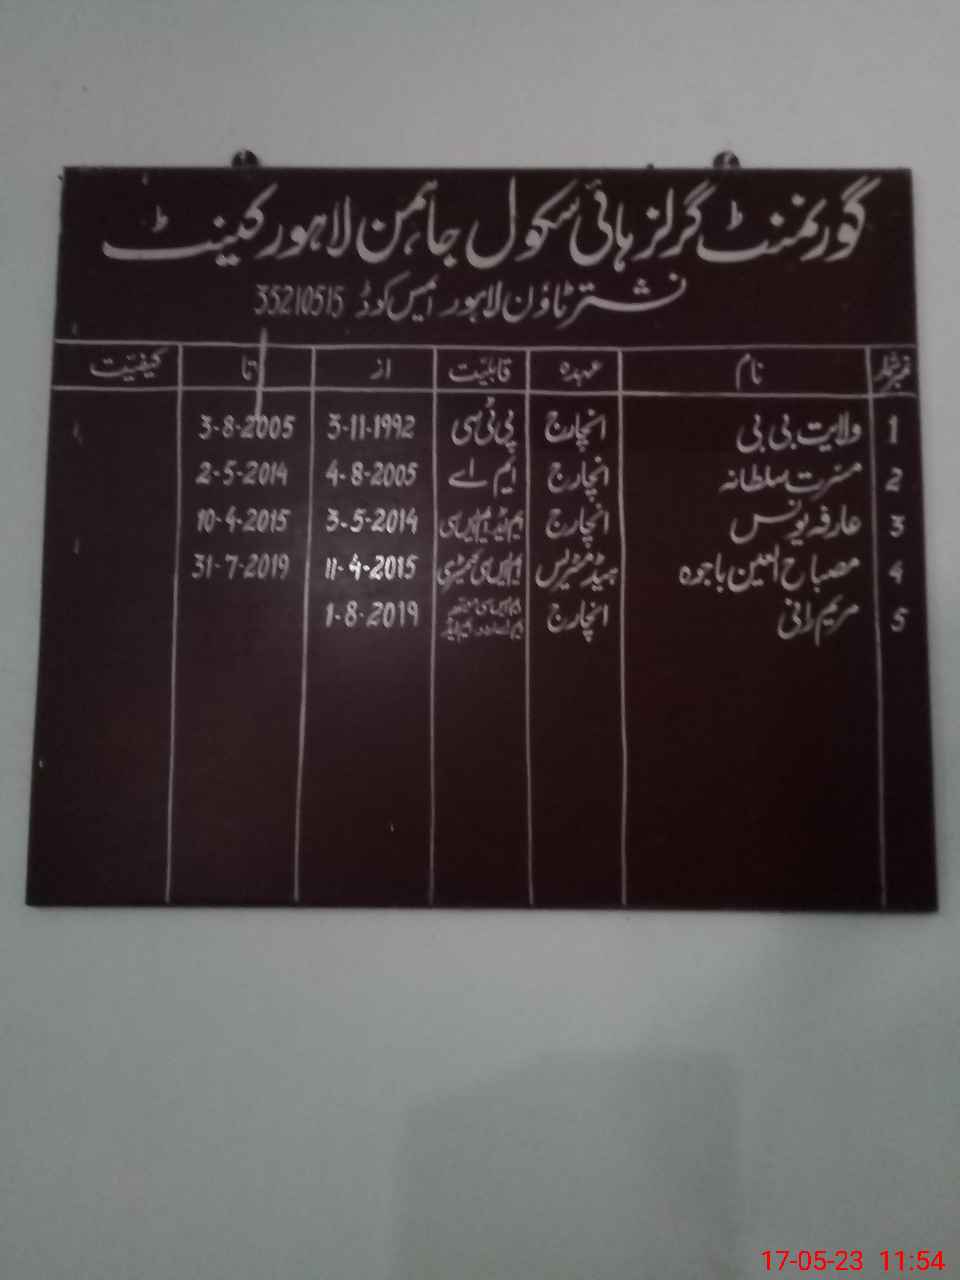 گورنمنٹ گرلز ہائی سکول جاہمن لاہور کینٹ
نشتر ٹاؤن لاہور ایمس کوڈ 35210515
نمبر شمار نام عہدہ قابلیت از تا کیفیت
1 ولایت بی بی انچارج پی ٹی سی 3-11-1992 3-8-2005
2 مسرت سلطانہ انچارج ایم اے 4-8-2005 2-5-2014
3 عارفہ یونس انچارج ایم ایڈ ایم ایس سی 3-5-2014 10-4-2015
4 مصباح العین باجوہ ہیڈ مسٹریس ایم ایس سی کیمسٹری 11-4-2015 31-7-2019
5 مریم رانی انچارج 1-8-2019
17-05-23 11:54